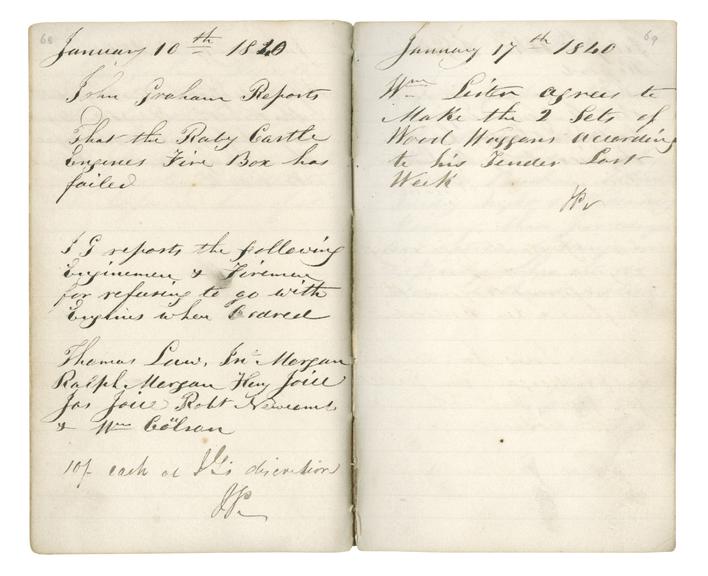 68
January 10th 1840
John Graham Reports
That the Raby Castle
Engines Fire Box has
failed
J G reports the following
Enginemen & Firemen
for refusing to go with
Engines when Ordred
Thomas Law, Jno Morgan
Ralph Morgan Hny Joice
Jas Joice Robt Newcomb
& Wm Colson
10/- each at JG's discretion
69
January 17th 1840
Wm Lister agrees to
Make the 2 Sets of
Wood Waggons according
to his Tender Last
Week